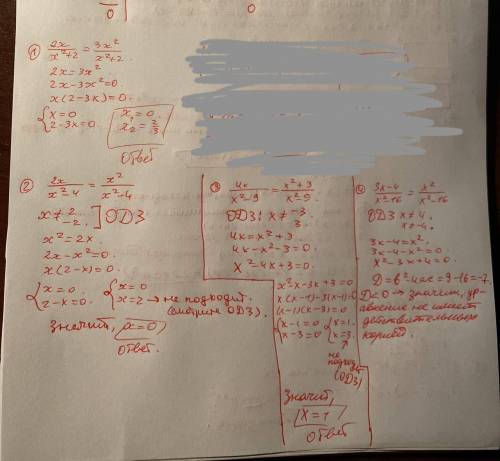 0
0
①
2x/(x²+2) = 3x²/(x²+2)
2x=3x²
2x-3x²=0
x(2-3x)=0.
{x=0
2-3x=0.
x₁=0.
x₂=2/3
Ответ
②
2x/(x²-4) = x²/(x²-4)
x≠2
-2.
] ОДЗ
x²=2x.
2x-x²=0
x(2-x)=0
{x=0.
2-x=0.
{x=0
x=2→не подходит.
(смотрите ОДЗ).
Значит, x=0
ответ.
③
4x/(x²-9) = (x²+3)/(x²-9).
ОДЗ: x≠-3
3.
4x=x²+3.
4x-x²-3=0.
x²-4x+3=0.
x²-x-3x+3=0
x(x-1)-3(x-1)=0
(x-1)(x-3)=0
{x-1=0
x-3=0
{x=1.
x=3.
не
подходит
(ОДЗ)
Значит,
x=1
ответ
④
(3x-4)/(x²-16) = x²/(x²-16)
ОДЗ x≠4.
x≠-4.
3x-4=x².
3x-4-x²=0.
x²-3x+4=0.
D=b²-4ac=9-16=-7.
D<0→значит, ур-
авнение не имеет
действительных
корней.